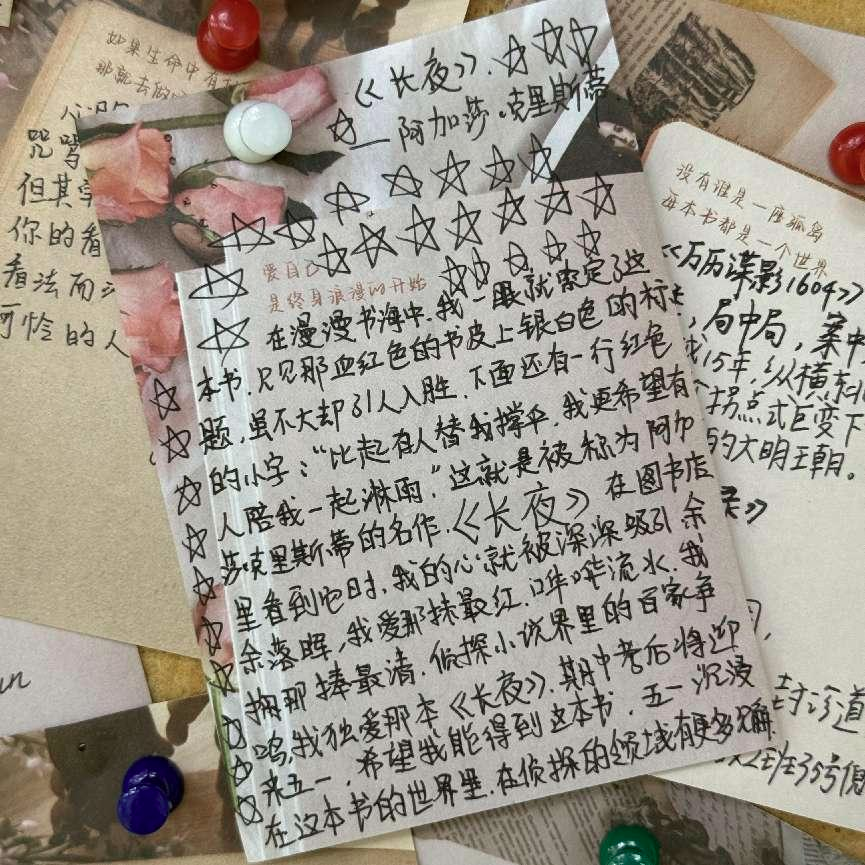 《长夜》.
——阿加莎·克里斯蒂.
爱自己
是终身浪漫的开始
在漫漫书海中,我一眼就索定了这
本书.只见那血红色的书皮上银白色的标
题,虽不大却引人入胜.下面还有一行红色
的小字:“比起有人替我撑伞.我更希望有
人陪我一起淋雨.”这就是被称为阿加
莎克里斯蒂的名作.《长夜》在图书店
里看到它时,我的心就被深深吸引.余
余落晖,我爱那抹最红.哗哗流水.我
拥那捧最清.侦探小说界里的百家争
鸣,我独爱那本《长夜》.期中考后将迎
来五一.希望我能得到这本书.五一沉浸
在这本书的世界里.在侦探的领域有更多
如果生命中有
那就去
咒骂
但其
你的看
看法而
可怜的人
没有谁是一座孤岛
每本书都是一个世界
《万历谍影1604》
局中局,案中
15年,纵横
拐点式巨变下
的大明王朝。